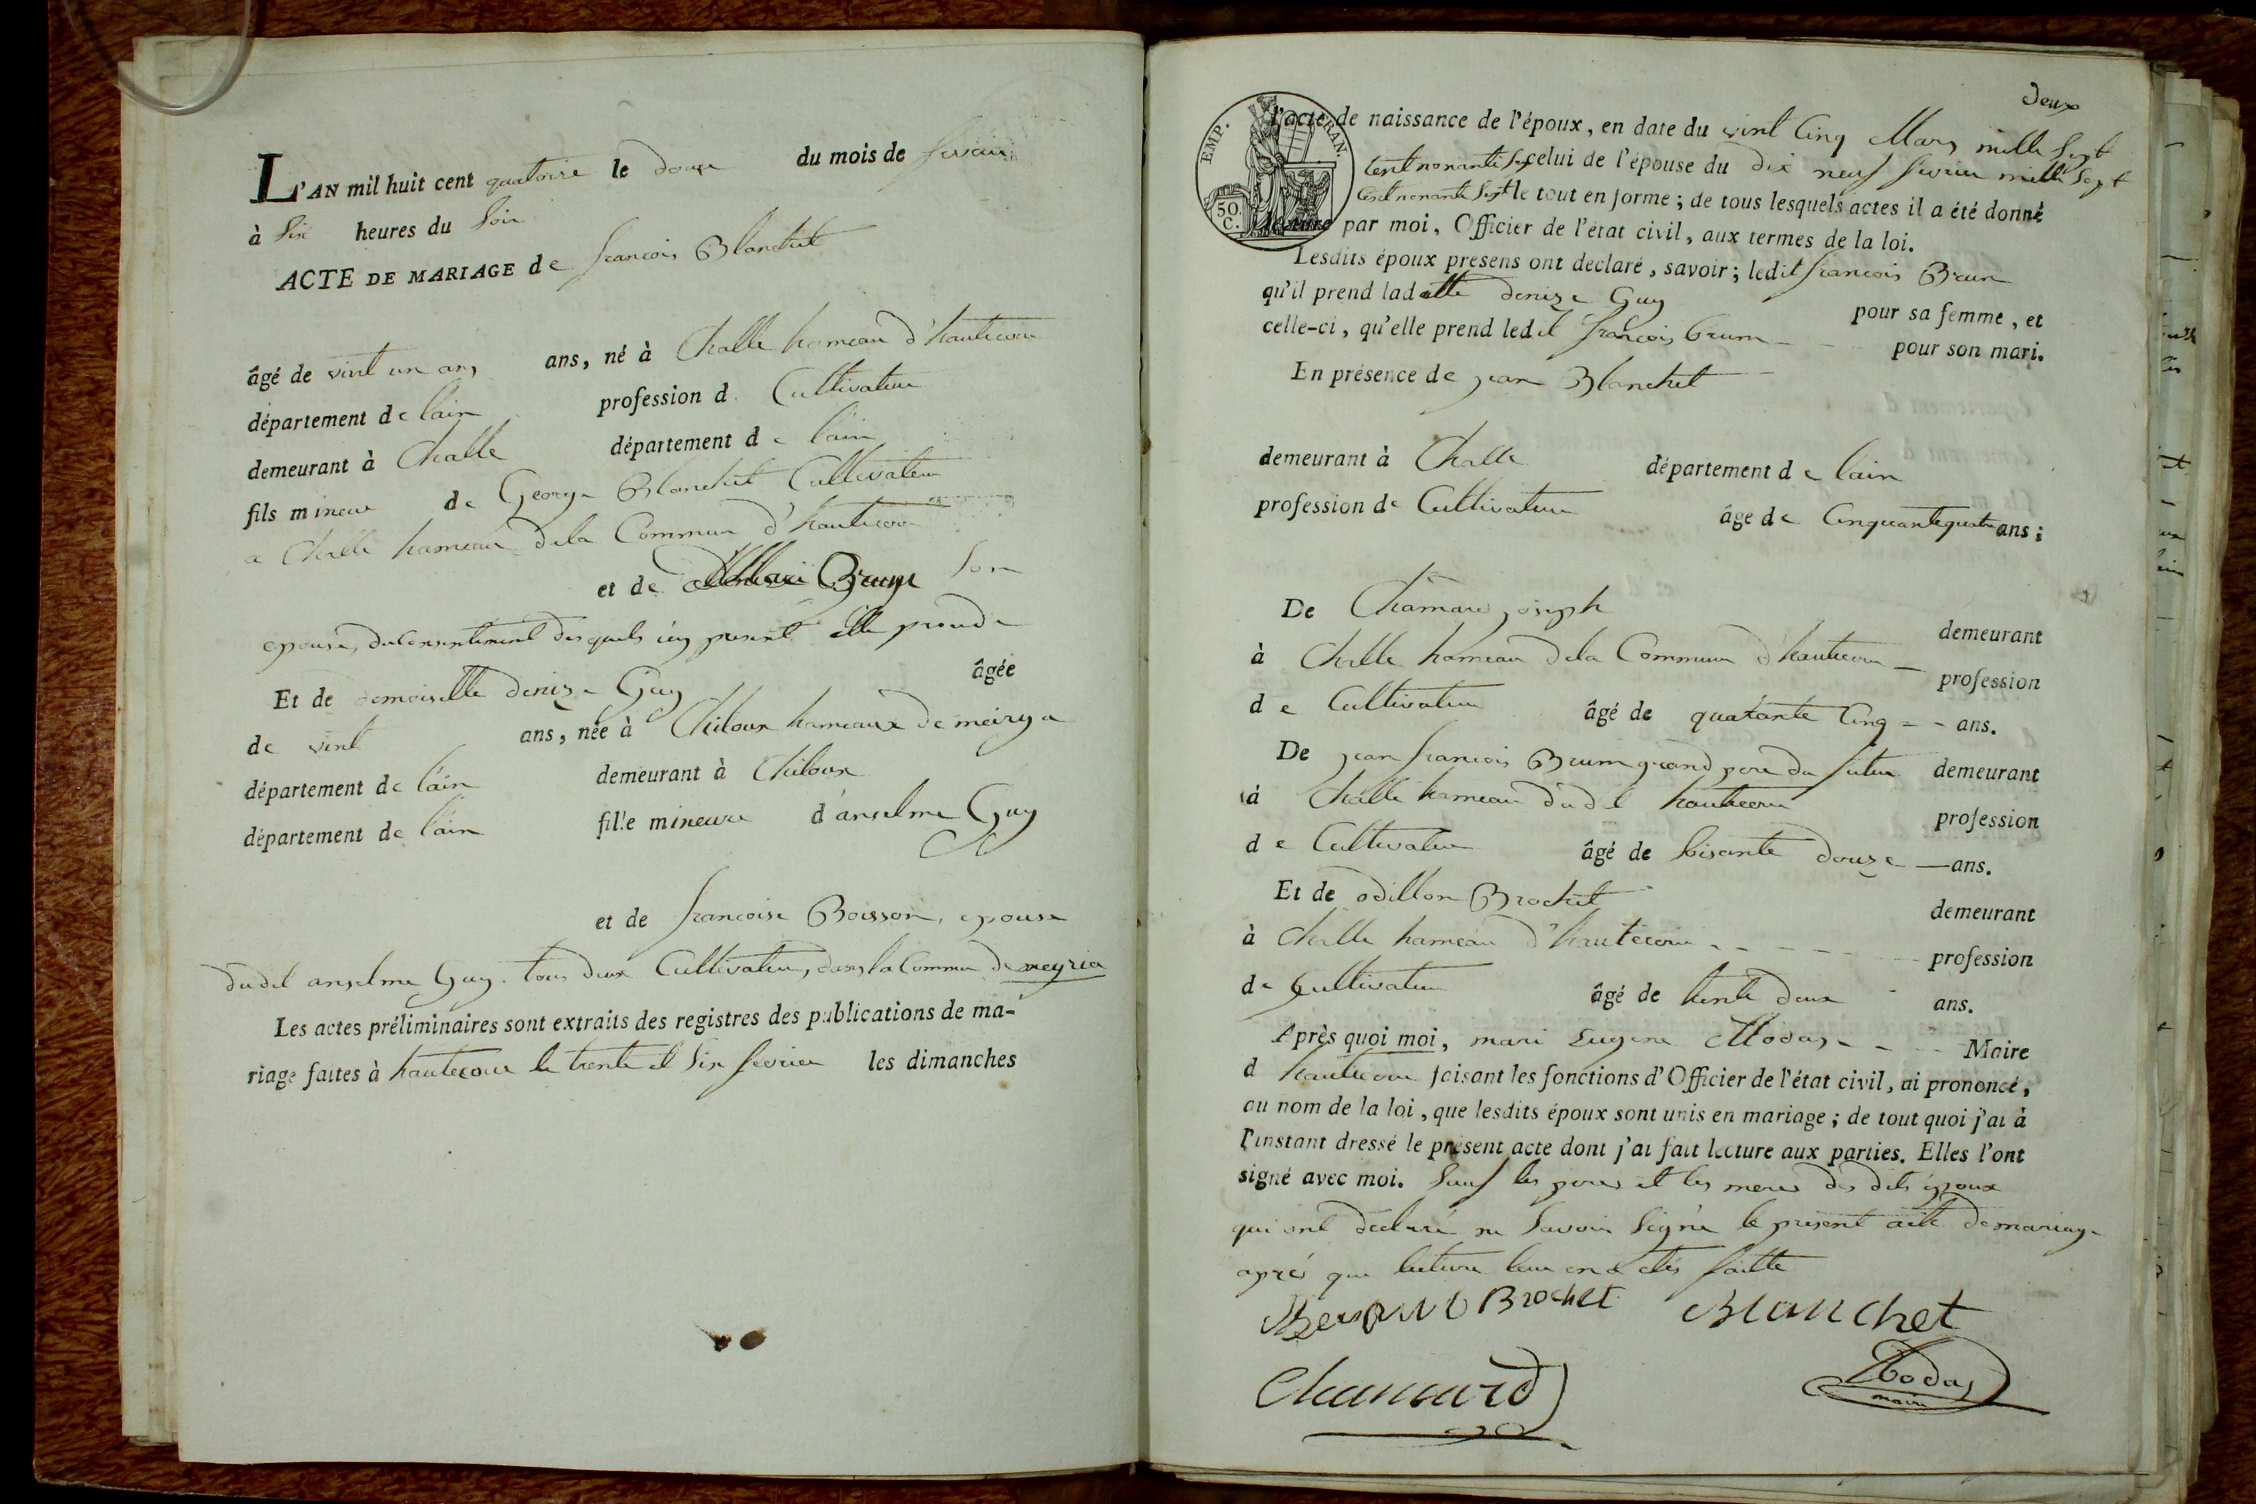 L'AN mil huit cent quatorze le douze du mois de fevrier
à Six heures du Soir
ACTE DE MARIAGE de francois Blanchet
âgé de vint un ans ans, né à Challe hameau d'hautecour
département de lain profession d Cultivateur
demeurant à Challe département de lain
fils mineur de George Blanchet Cultivateur
a Challe hameau dela Commun d'hautecour
et de Marie Brun Son
epouse, du Consentement des quels icy present elle proude
Et de demoiselle denize Guy âgée
de vint ans, née à Chiloux hameaux de meirya
département de lain demeurant à Chiloux
département de lain fille mineure d'anselme Guy
et de francoise Boisson, epouse
dudit anselme Guy. tous deux Cultivateur, dans la Commun de meyria
Les actes préliminaires sont extraits des registres des publications de ma-
riage faites à hautecour le trente et Six fevrier les dimanches
deux
EMP. FRAN.
50. C.
l'acte de naissance de l'époux, en date du vint Cinq Mars mille Sept
Cent nonante celui de l'épouse du dix neuf fevrier mille Sept
Cent nonante Sept le tout en forme ; de tous lesquels actes il a été donné
lecture par moi, Officier de l'état civil, aux termes de la loi.
Lesdits époux présens ont declaré, savoir ; ledit francois Brun
qu'il prend ladette denize Guy pour sa femme, et
celle-ci, qu'elle prend ledit francois brun pour son mari.
En présence de jean Blanchet
demeurant à Challe département de lain
profession de Cultivateur âge de Cinquante quatre ans ;
De Chamard joseph demeurant
à Challe hameau dela Commun d'hautecour profession
de Cultivateur âgé de quarante Cinq ans.
De jean francois Brun grand pere du futur demeurant
à Challe hameau dudt hautecour profession
de Cultivateur âgé de Soisante douze ans.
Et de odillon Brochet demeurant
à Challe hameau d'hautecour profession
de Cultivateur âgé de trente deux ans.
Après quoi moi, mari Eugene Modas Maire
d hautecour faisant les fonctions d'Officier de l'état civil, ai prononcé,
au nom de la loi, que lesdits époux sont unis en mariage ; de tout quoi j'ai à
l'instant dressé le présent acte dont j'ai fait lecture aux parties. Elles l'ont
signé avec moi. Sauf les peres et les meres des dits époux
qui ont déclaré ne Savoir Signé le present acte de mariage
aprés que lecture leur en a etés faitte
Brochet Blanchet
Chamard Modas
maire